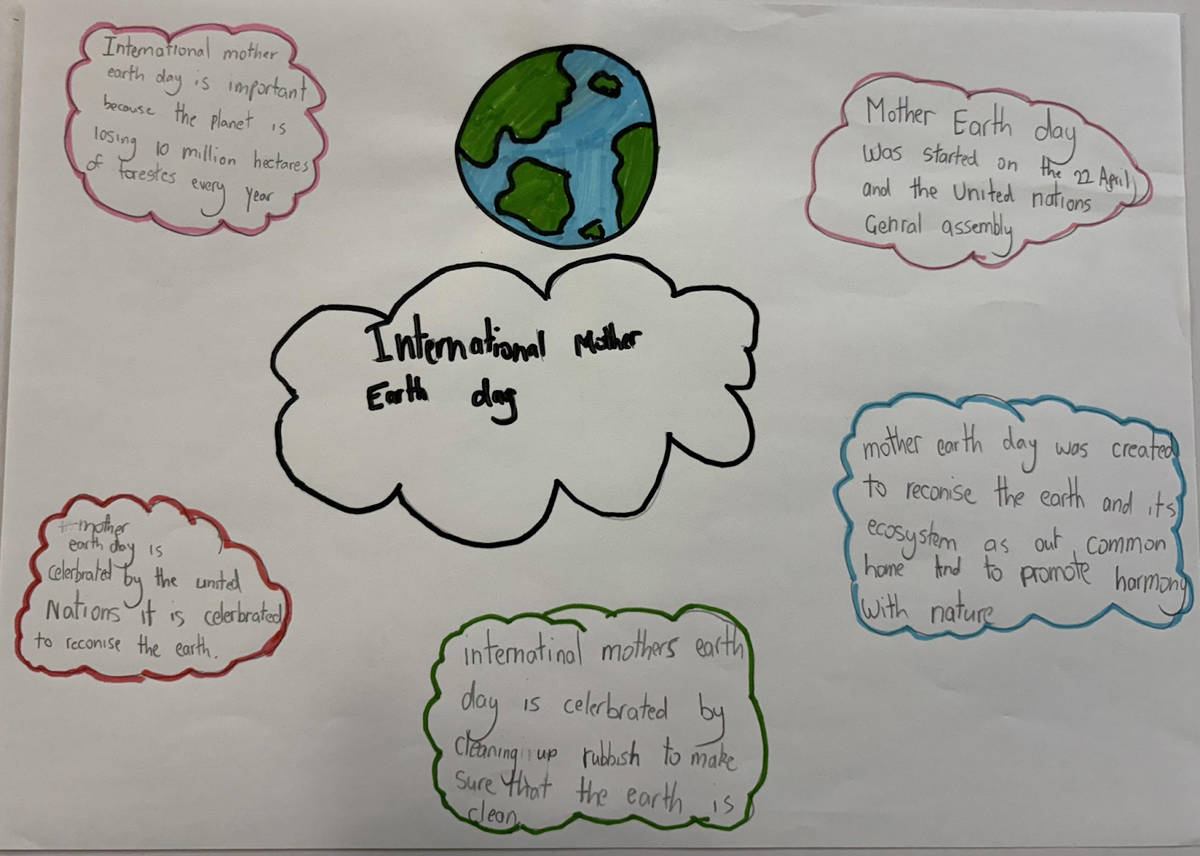 International mother
earth day is important
because the planet is
losing 10 million hectares
of forestes every year
Mother Earth day
was started on the 22 April
and the United nations
Genral assembly
International Mother
Earth day
mother earth day was created
to reconise the earth and its
ecosystem as out common
home And to promote harmony
with nature
mother
earth day is
celerbrated by the united
Nations it is celerbrated
to reconise the earth.
internatinal mothers earth
day is celerbrated by
cleaning up rubbish to make
sure that the earth is
clean